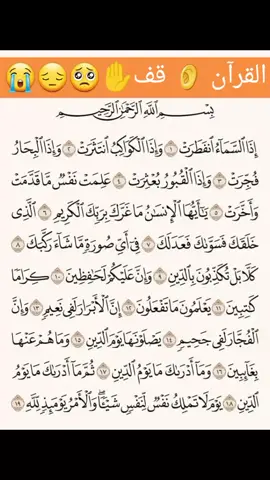 القرآن 👂 قف✋🥺😔😭
بِسْمِ ٱللَّهِ ٱلرَّحْمَٰنِ ٱلرَّحِيمِ
إِذَا ٱلسَّمَآءُ ٱنفَطَرَتْ ١ وَإِذَا ٱلْكَوَاكِبُ ٱنتَثَرَتْ ٢ وَإِذَا ٱلْبِحَارُ
فُجِّرَتْ ٣ وَإِذَا ٱلْقُبُورُ بُعْثِرَتْ ٤ عَلِمَتْ نَفْسٌ مَّا قَدَّمَتْ
وَأَخَّرَتْ ٥ يَٰٓأَيُّهَا ٱلْإِنسَٰنُ مَا غَرَّكَ بِرَبِّكَ ٱلْكَرِيمِ ٦ ٱلَّذِى
خَلَقَكَ فَسَوَّىٰكَ فَعَدَلَكَ ٧ فِىٓ أَىِّ صُورَةٍ مَّا شَآءَ رَكَّبَكَ ٨
كَلَّا بَلْ تُكَذِّبُونَ بِٱلدِّينِ ٩ وَإِنَّ عَلَيْكُمْ لَحَٰفِظِينَ ١٠ كِرَامًا
كَٰتِبِينَ ١١ يَعْلَمُونَ مَا تَفْعَلُونَ ١٢ إِنَّ ٱلْأَبْرَارَ لَفِى نَعِيمٍ ١٣ وَإِنَّ
ٱلْفُجَّارَ لَفِى جَحِيمٍ ١٤ يَصْلَوْنَهَا يَوْمَ ٱلدِّينِ ١٥ وَمَا هُمْ عَنْهَا
بِغَآئِبِينَ ١٦ وَمَآ أَدْرَىٰكَ مَا يَوْمُ ٱلدِّينِ ١٧ ثُمَّ مَآ أَدْرَىٰكَ مَا يَوْمُ
ٱلدِّينِ ١٨ يَوْمَ لَا تَمْلِكُ نَفْسٌ لِّنَفْسٍ شَيْـًٔا ۖ وَٱلْأَمْرُ يَوْمَئِذٍ لِّلَّهِ ١٩